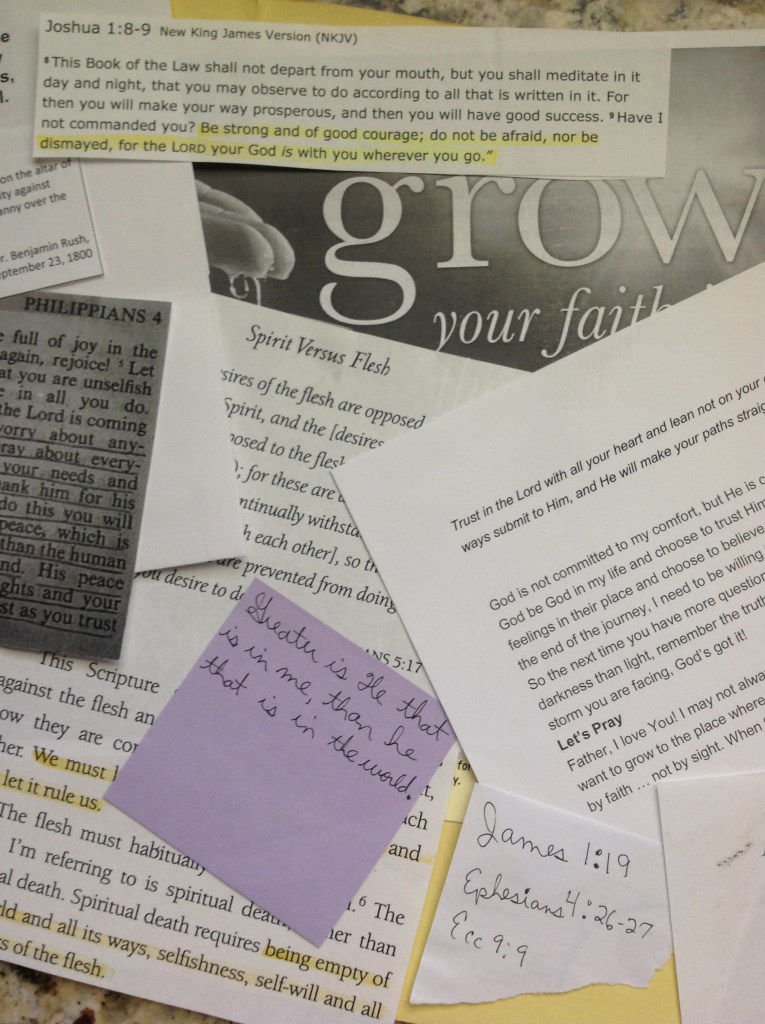 Joshua 1:8-9 New King James Version (NKJV)
⁸This Book of the Law shall not depart from your mouth, but you shall meditate in it
day and night, that you may observe to do according to all that is written in it. For
then you will make your way prosperous, and then you will have good success. ⁹Have I
not commanded you? Be strong and of good courage; do not be afraid, nor be
dismayed, for the LORD your God is with you wherever you go.”
on the altar of
ity against
anny over the
r. Benjamin Rush,
ptember 23, 1800
grow
your faith
PHILIPPIANS 4
full of joy in the
again, rejoice! ⁵ Let
at you are unselfish
in all you do.
the Lord is coming
worry about any-
ray about every-
your needs and
ank him for his
do this you will
peace, which is
than the human
nd. His peace
ghts and your
st as you trust
Spirit Versus Flesh
sires of the flesh are opposed
Spirit, and the [desires
posed to the flesh
); for these are
ntinually withsta
h each other], so th
are prevented from doing
you desire to do
NS 5:17
Trust in the Lord with all your heart and lean not on your
ways submit to Him, and He will make your paths straig
God is not committed to my comfort, but He is c
God be God in my life and choose to trust Him
feelings in their place and choose to believe
the end of the journey, I need to be willing
So the next time you have more question
darkness than light, remember the truth
storm you are facing, God's got it!
Let's Pray
Father, I love You! I may not alwa
want to grow to the place where
by faith ... not by sight. When
Greater is He that
is in me, than he
that is in the world.
This Scripture
against the flesh an
ow they are cor
her. We must l
let it rule us.
The flesh must habitually
I'm referring to is spiritual death,
al death. Spiritual death requires being empty of
ld and all its ways, selfishness, self-will and all
s of the flesh.
for
y.
t,
ch
and
.⁶ The
her than
James 1:19
Ephesians 4:26-27
Ecc 9:9